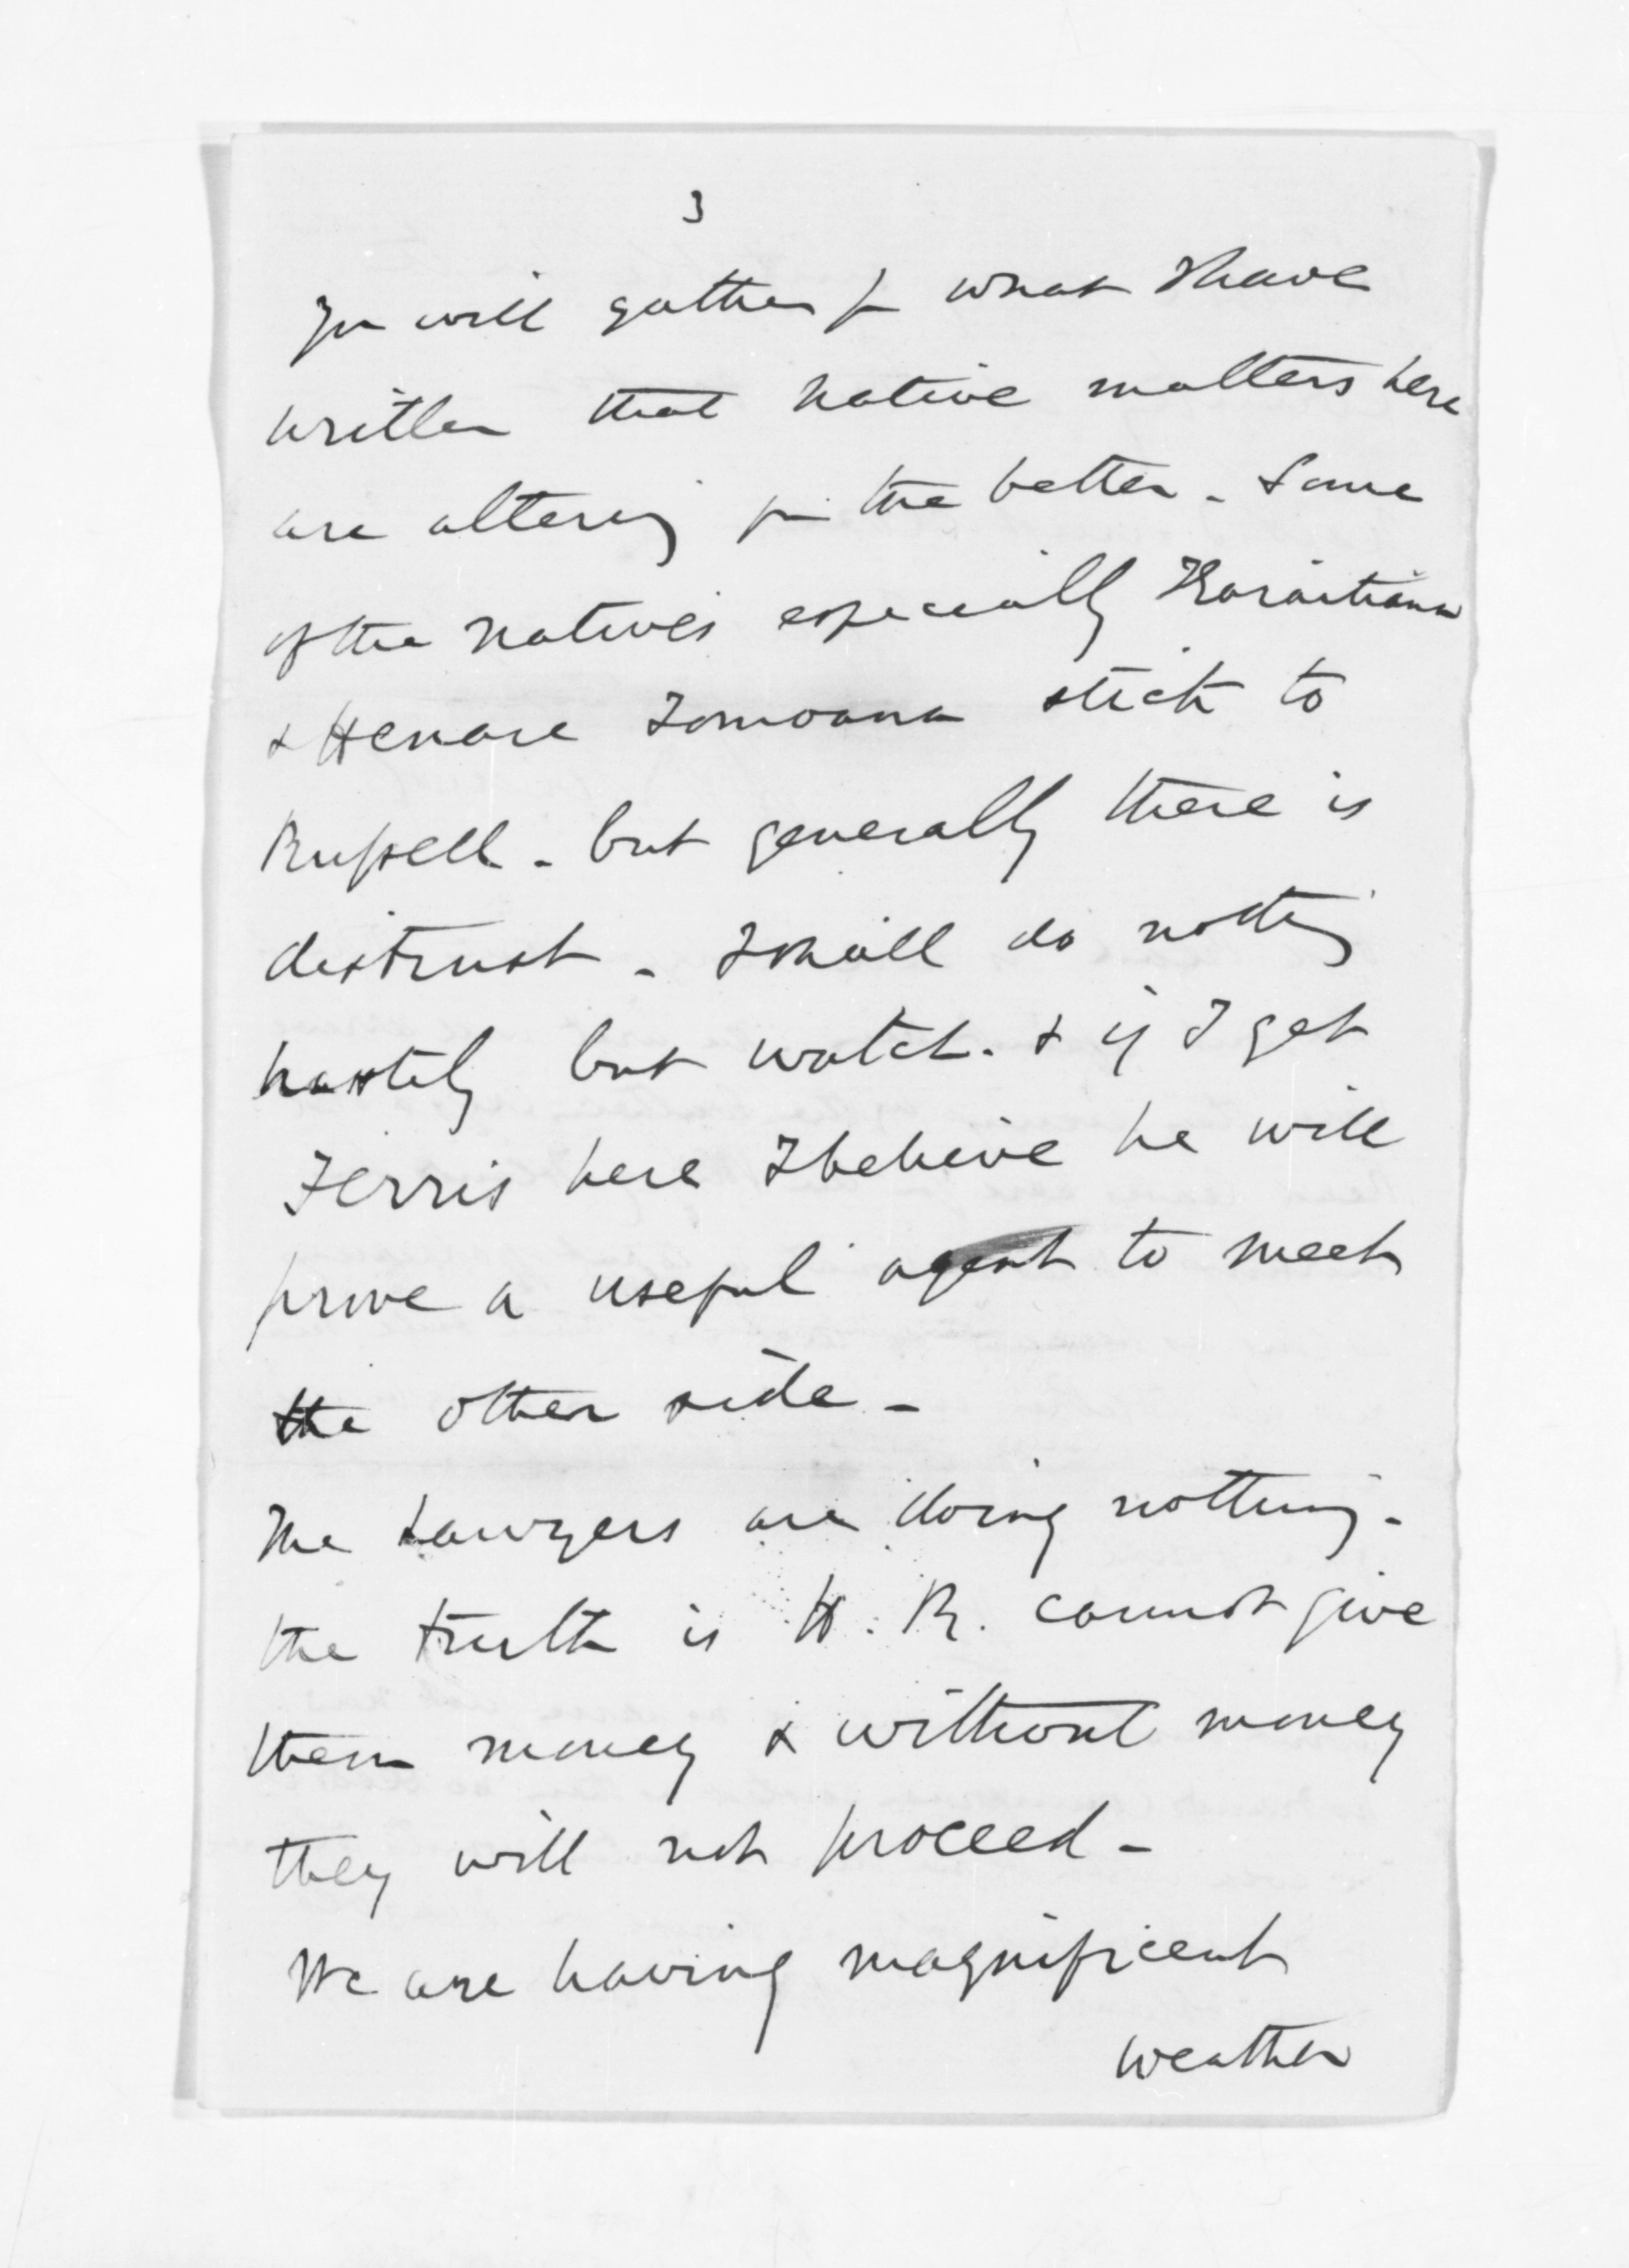 3
You will gather fm what I have
written that native matters here
are altering for the better - Some
of the natives especially Karaitiana
& Henare Tomoana stick to
Russell - but generally there is
distrust - I shall do nothing
hastily but watch. & if I get
Ferris here I believe he will
prove a useful agent to meet
the other side -
The Lawyers are doing nothing -
the truth is H. R. cannot give
them money & without money
they will not proceed -
We are having magnificent
weather